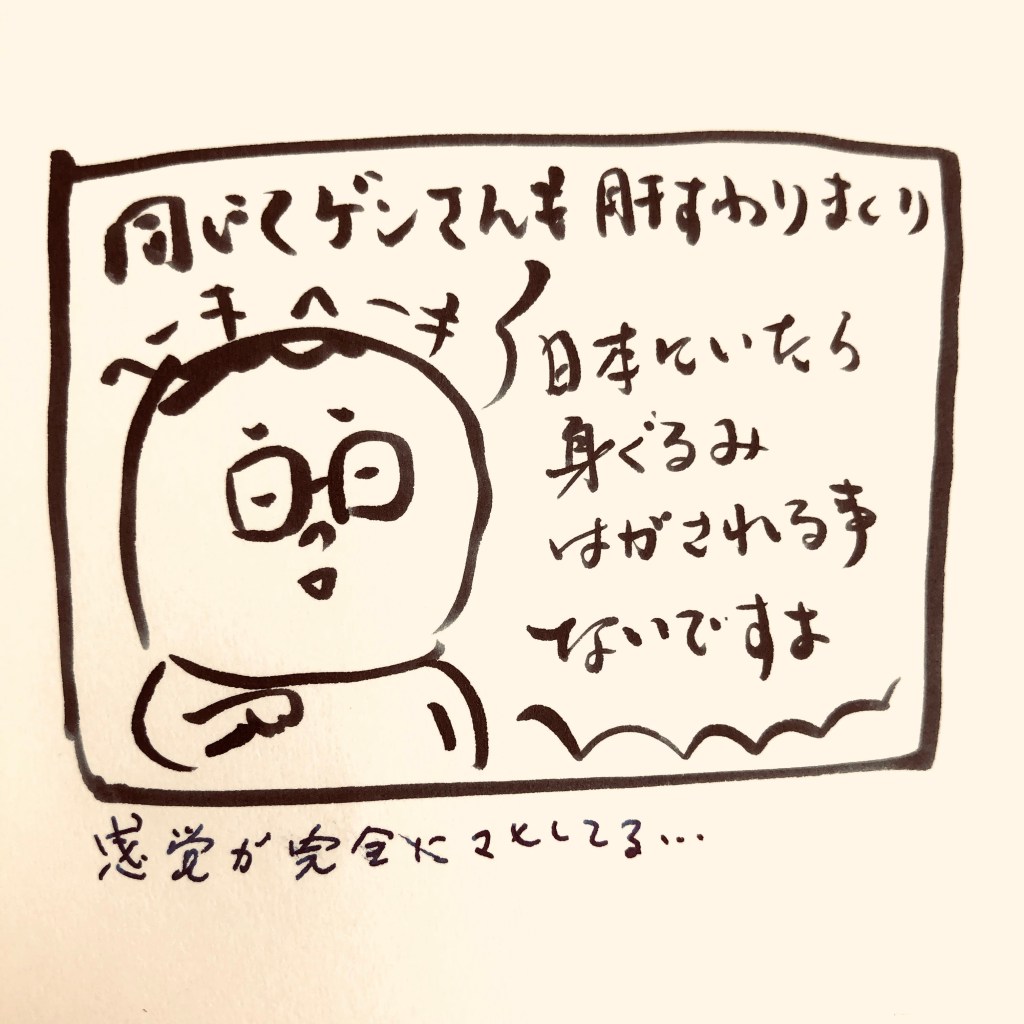 同じくゲンさんも肝すわりまくり
へーキへーキ
日本にいたら
身ぐるみ
はがされる事
ないですよ
感覚が完全にマヒしてる…